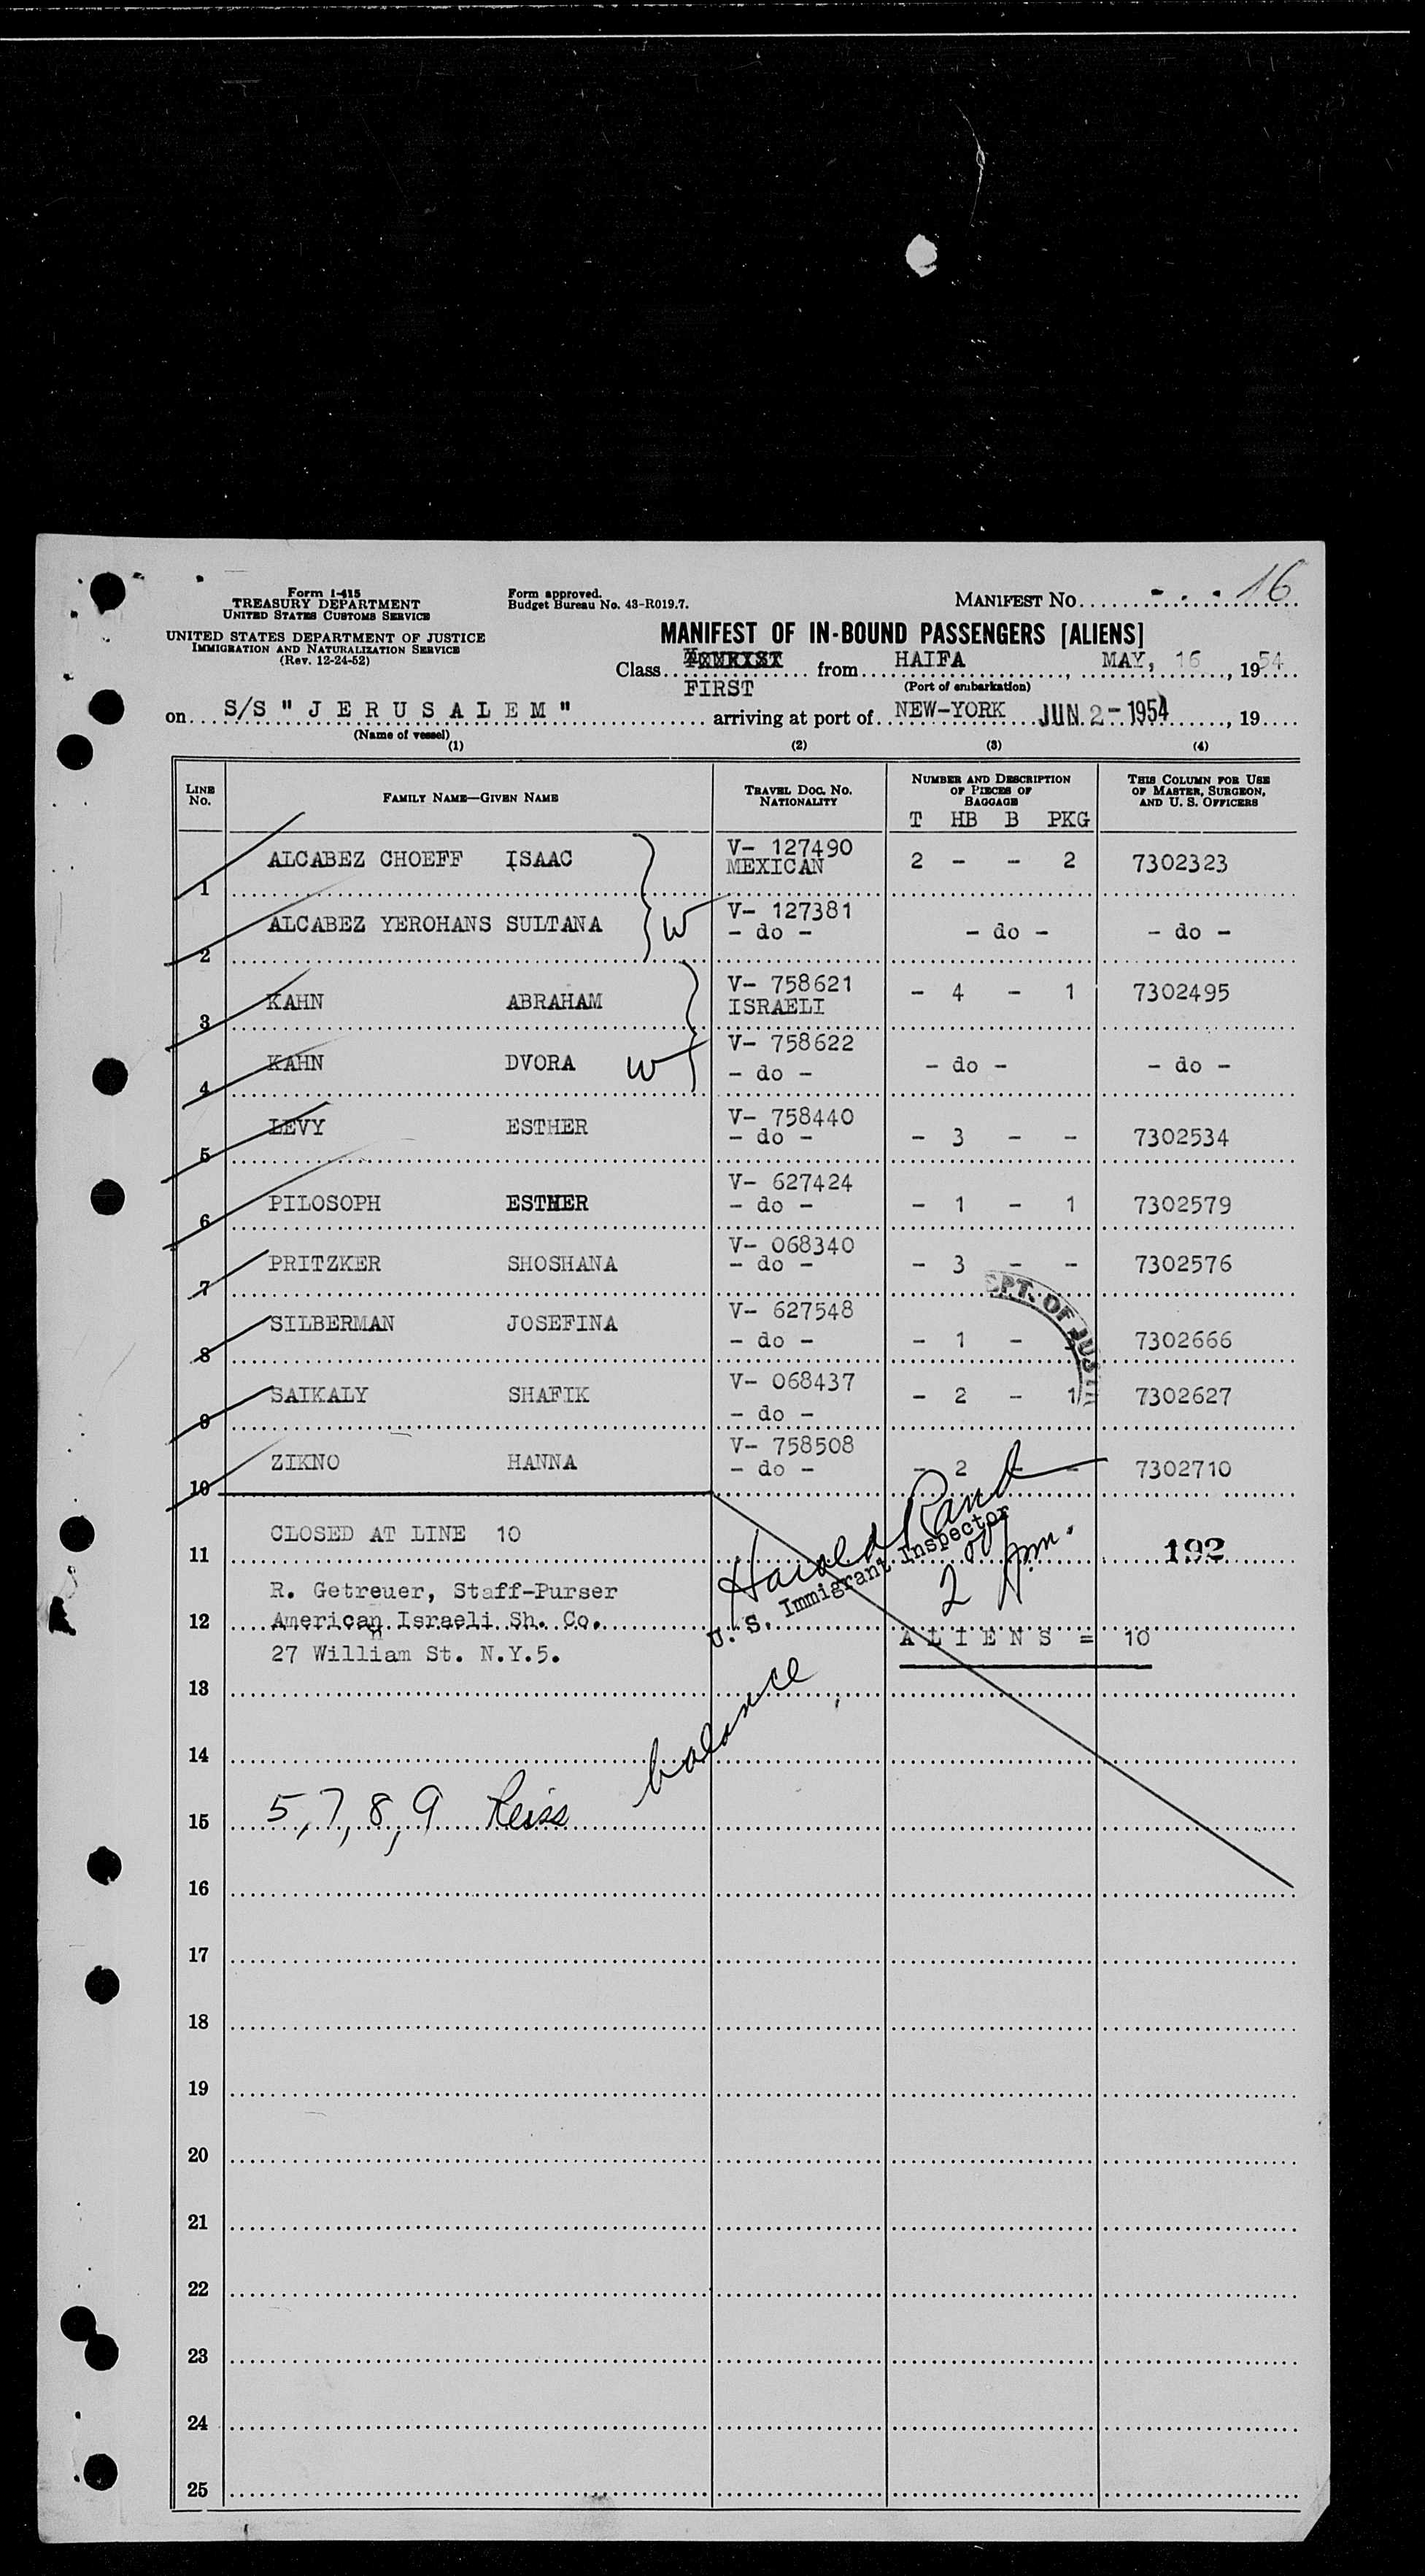 Form I-415
TREASURY DEPARTMENT
UNITED STATES CUSTOMS SERVICE
UNITED STATES DEPARTMENT OF JUSTICE
IMMIGRATION AND NATURALIZATION SERVICE
(Rev. 12-24-52)
Form approved.
Budget Bureau No. 43-R019.7.
MANIFEST NO. 16
MANIFEST OF IN-BOUND PASSENGERS [ALIENS]
Class FIRST from HAIFA, MAY, 16, 1954
(Port of embarkation)
on S/S "JERUSALEM" arriving at port of NEW-YORK JUN 2-1954, 19
(Name of vessel)
(1) (2) (3) (4)
LINE NO. FAMILY NAME—GIVEN NAME TRAVEL DOC. NO. NATIONALITY NUMBER AND DESCRIPTION OF PIECES OF BAGGAGE THIS COLUMN FOR USE OF MASTER, SURGEON, AND U. S. OFFICERS
T HB B PKG
1 ALCABEZ CHOEFF ISAAC V- 127490 MEXICAN 2 - - 2 7302323
2 ALCABEZ YEROHANS SULTANA W V- 127381 - do - - do - - do -
3 KAHN ABRAHAM V- 758621 ISRAELI - 4 - 1 7302495
4 KAHN DVORA W V- 758622 - do - - do - - do -
5 LEVY ESTHER V- 758440 - do - - 3 - - 7302534
6 PILOSOPH ESTHER V- 627424 - do - - 1 - 1 7302579
7 PRITZKER SHOSHANA V- 068340 - do - - 3 - - 7302576
8 SILBERMAN JOSEFINA V- 627548 - do - - 1 - 7302666
9 SAIKALY SHAFIK V- 068437 - do - - 2 - 1 7302627
10 ZIKNO HANNA V- 758508 - do - - 2 - - 7302710
PT. OF JUSTI
11 CLOSED AT LINE 10 192
Harold Rand
U. S. Immigrant Inspector
2 00 pm.
R. Getreuer, Staff-Purser
12 American Israeli Sh. Co.
27 William St. N.Y.5.
ALIENS = 10
13
balance
14
15 5, 7, 8, 9 Reiss
16
17
18
19
20
21
22
23
24
25